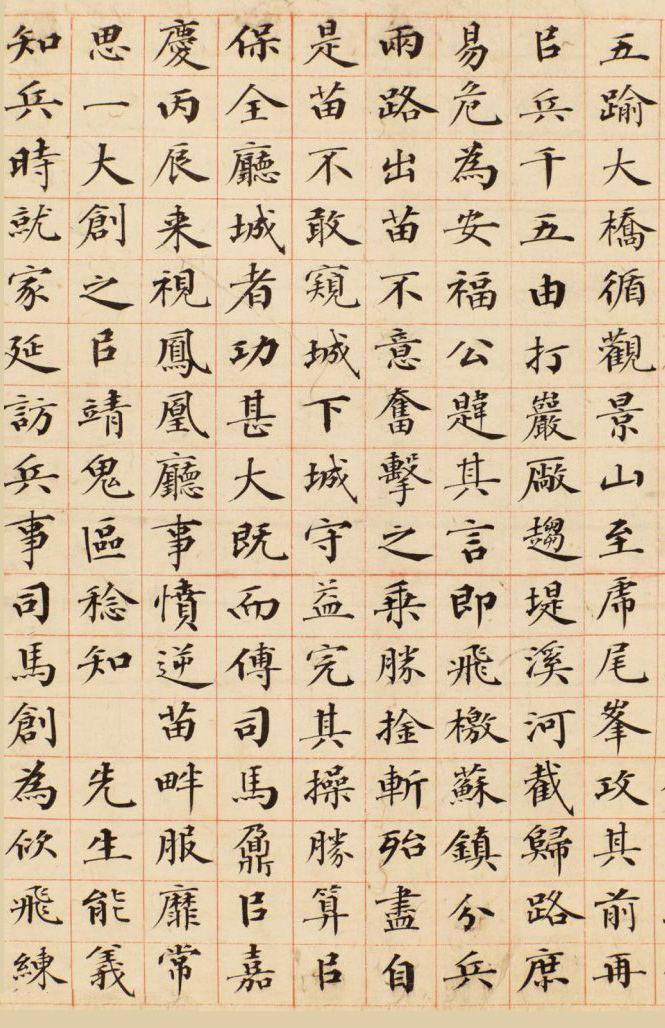 五踰大橋循觀景山至虎尾峯攻其前再
㠯兵千五由打巖厰趨堤溪河截歸路庶
易危為安福公韙其言即飛檄蘇鎮分兵
兩路出苗不意奮擊之乘勝捦斬殆盡自
是苗不敢窺城下城守益完其操勝算㠯
保全廳城者功甚大既而傅司馬鼐㠯嘉
慶丙辰来視鳳凰廳事憤逆苗畔服靡常
思一大創之㠯靖鬼區稔知 先生能義
知兵時就家延訪兵事司馬創為佽飛練